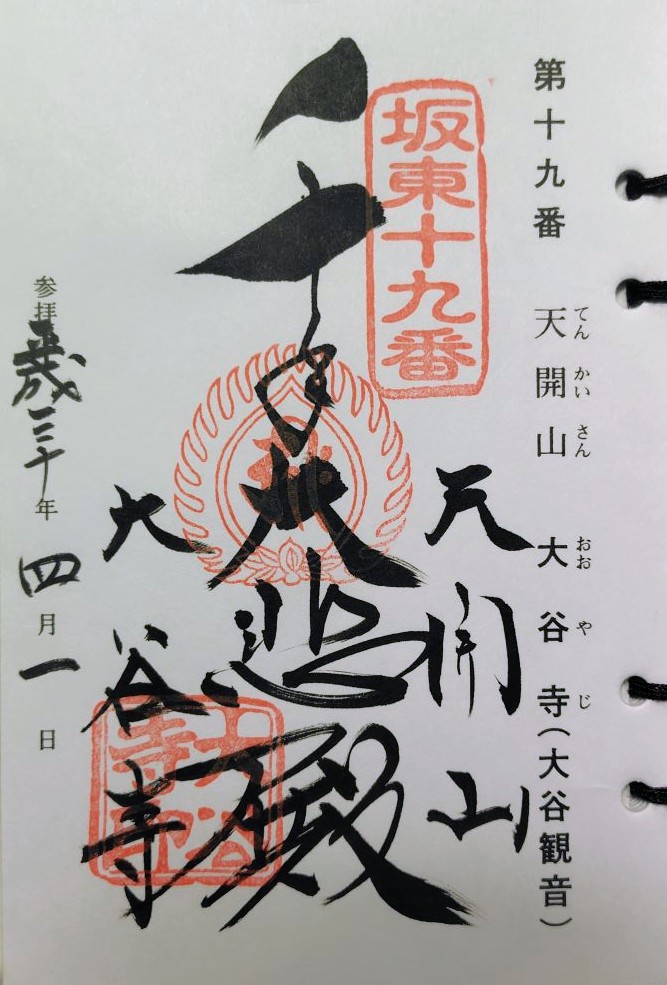 第十九番 天開山 大谷寺(大谷観音)
てんかいさん おおやじ
坂東十九番
天開山
千手大悲殿
大谷寺
大谷寺印
参拝 平成三十年四月一日